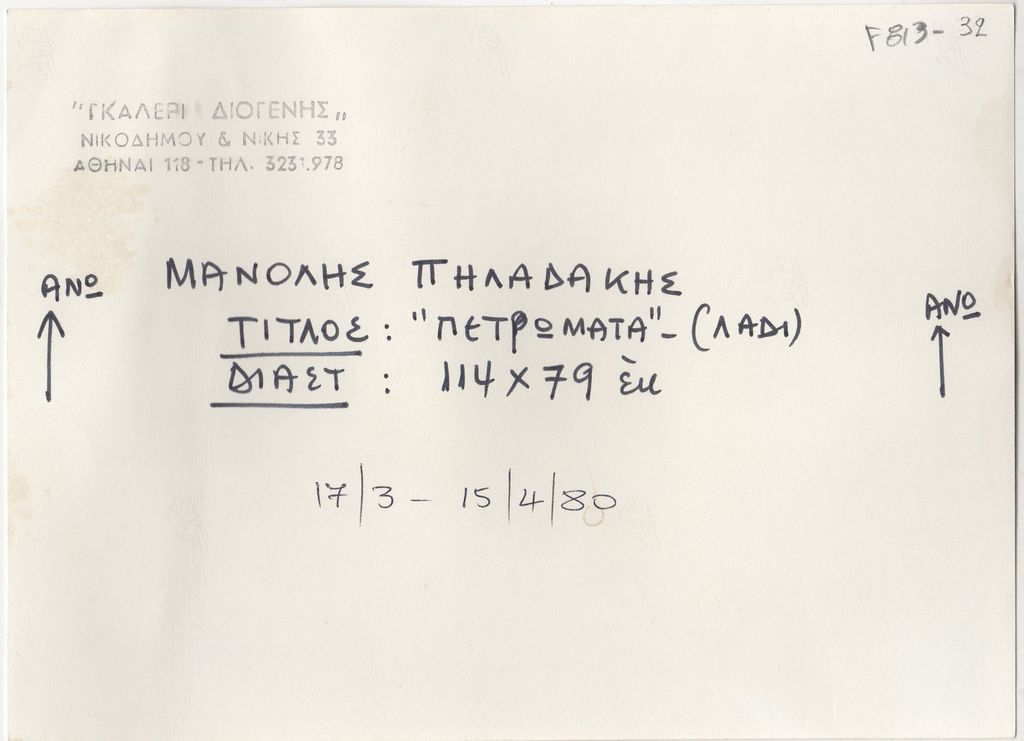 F813-32
"ΓΚΑΛΕΡΙ ΔΙΟΓΕΝΗΣ„
ΝΙΚΟΔΗΜΟΥ & ΝΙΚΗΣ 33
ΑΘΗΝΑΙ 118 - ΤΗΛ. 3231.978
ΑΝΩ
ΜΑΝΟΛΗΣ ΠΗΛΑΔΑΚΗΣ
ΤΙΤΛΟΣ: "ΠΕΤΡΩΜΑΤΑ"- (ΛΑΔΙ)
ΔΙΑΣΤ : 114 X 79 ἑκ
ΑΝΩ
17/3 - 15/4/80